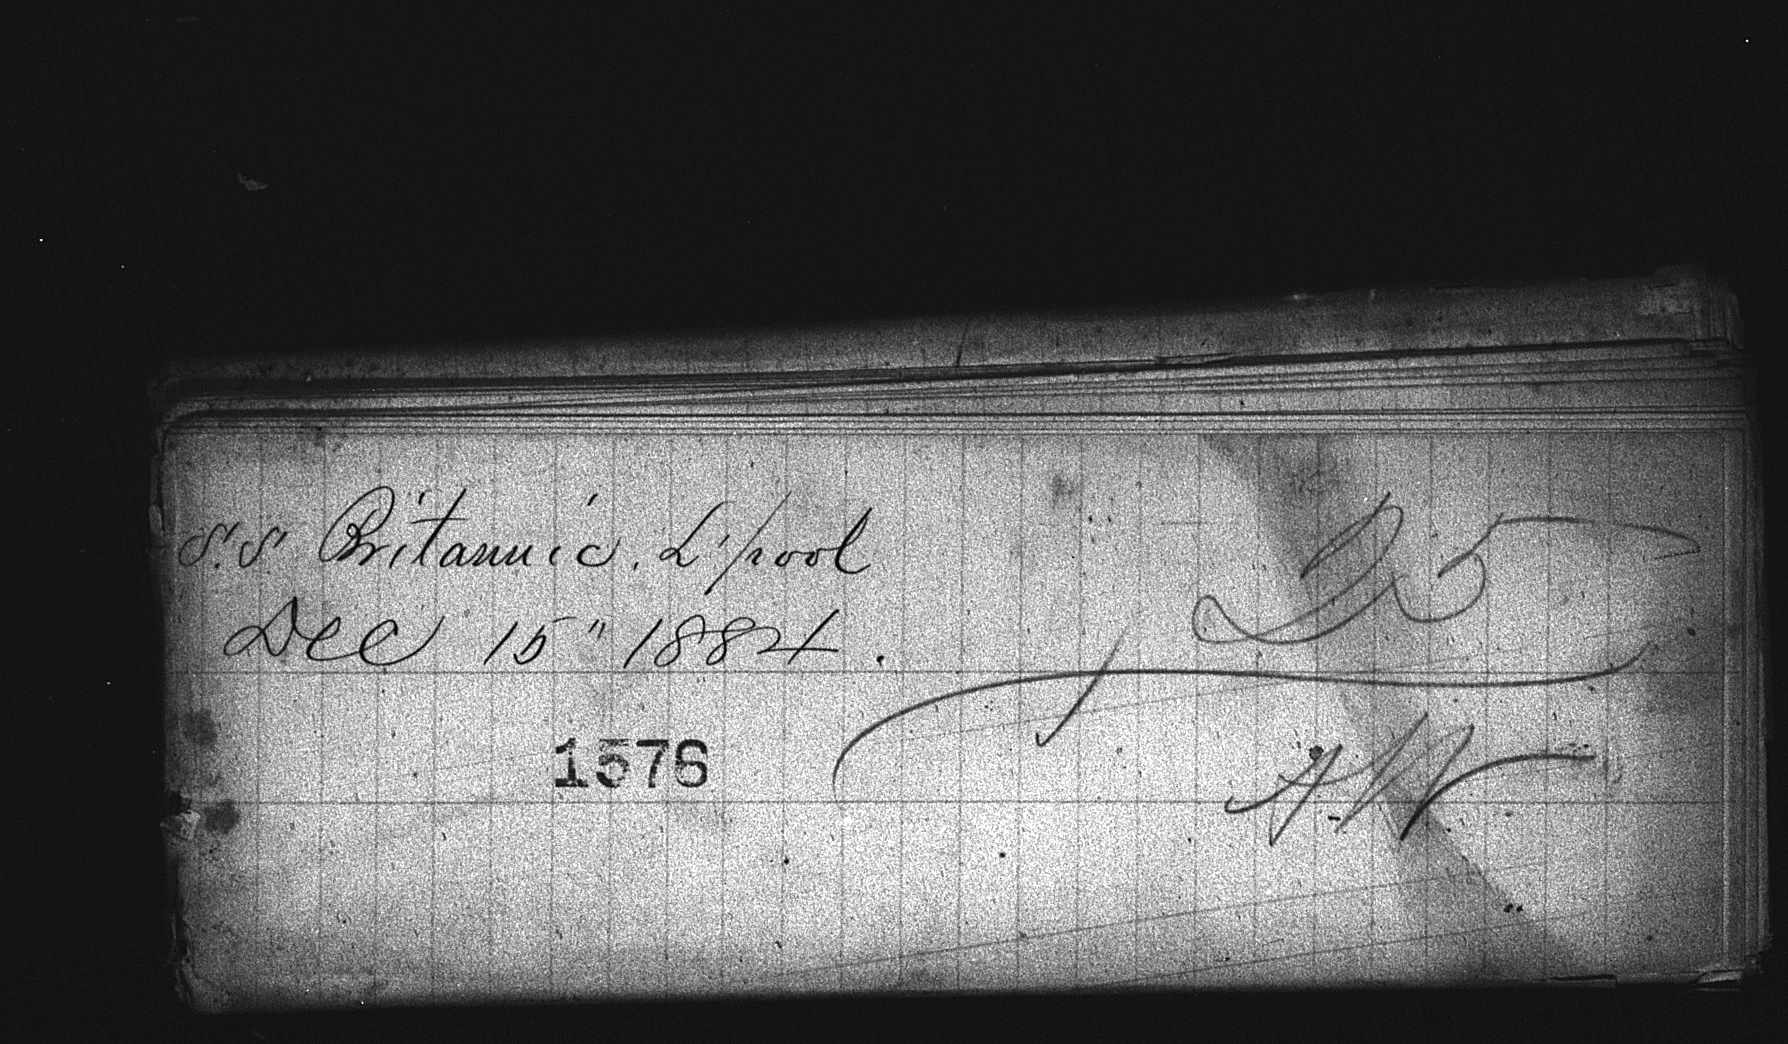 S.S. Britannic. L'pool
Dec 15" 1884.
1576
25
A.W.